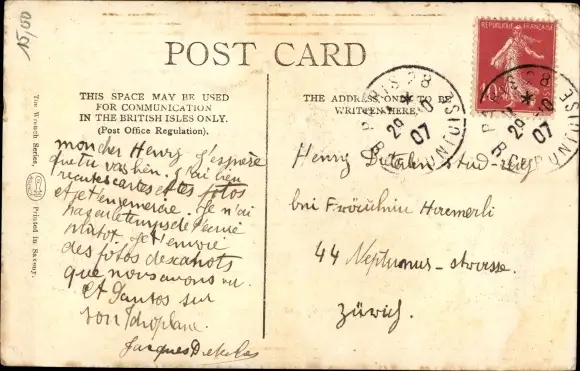 15/00
POST CARD
THIS SPACE MAY BE USED
FOR COMMUNICATION
IN THE BRITISH ISLES ONLY.
(Post Office Regulation).
THE ADDRESS ONLY TO BE
WRITTEN HERE.
The Wrench Series,
Printed in Saxony.
REPUBLIQUE FRANÇAISE
10
PARIS 28
07
PARIS 28
07
mon cher Henry j'espère
que tu vas bien. j'ai bien
cartes et tes fotos
et je t'en remercie. Je n'ai
pas eu le temps de t'écrire
plutot. je t'envoie
des fotos
que nous avons vu.
et Santos sur
son
Jacques
Henry
bei Fräulein
44 Neptunus-strasse.
Zürich.